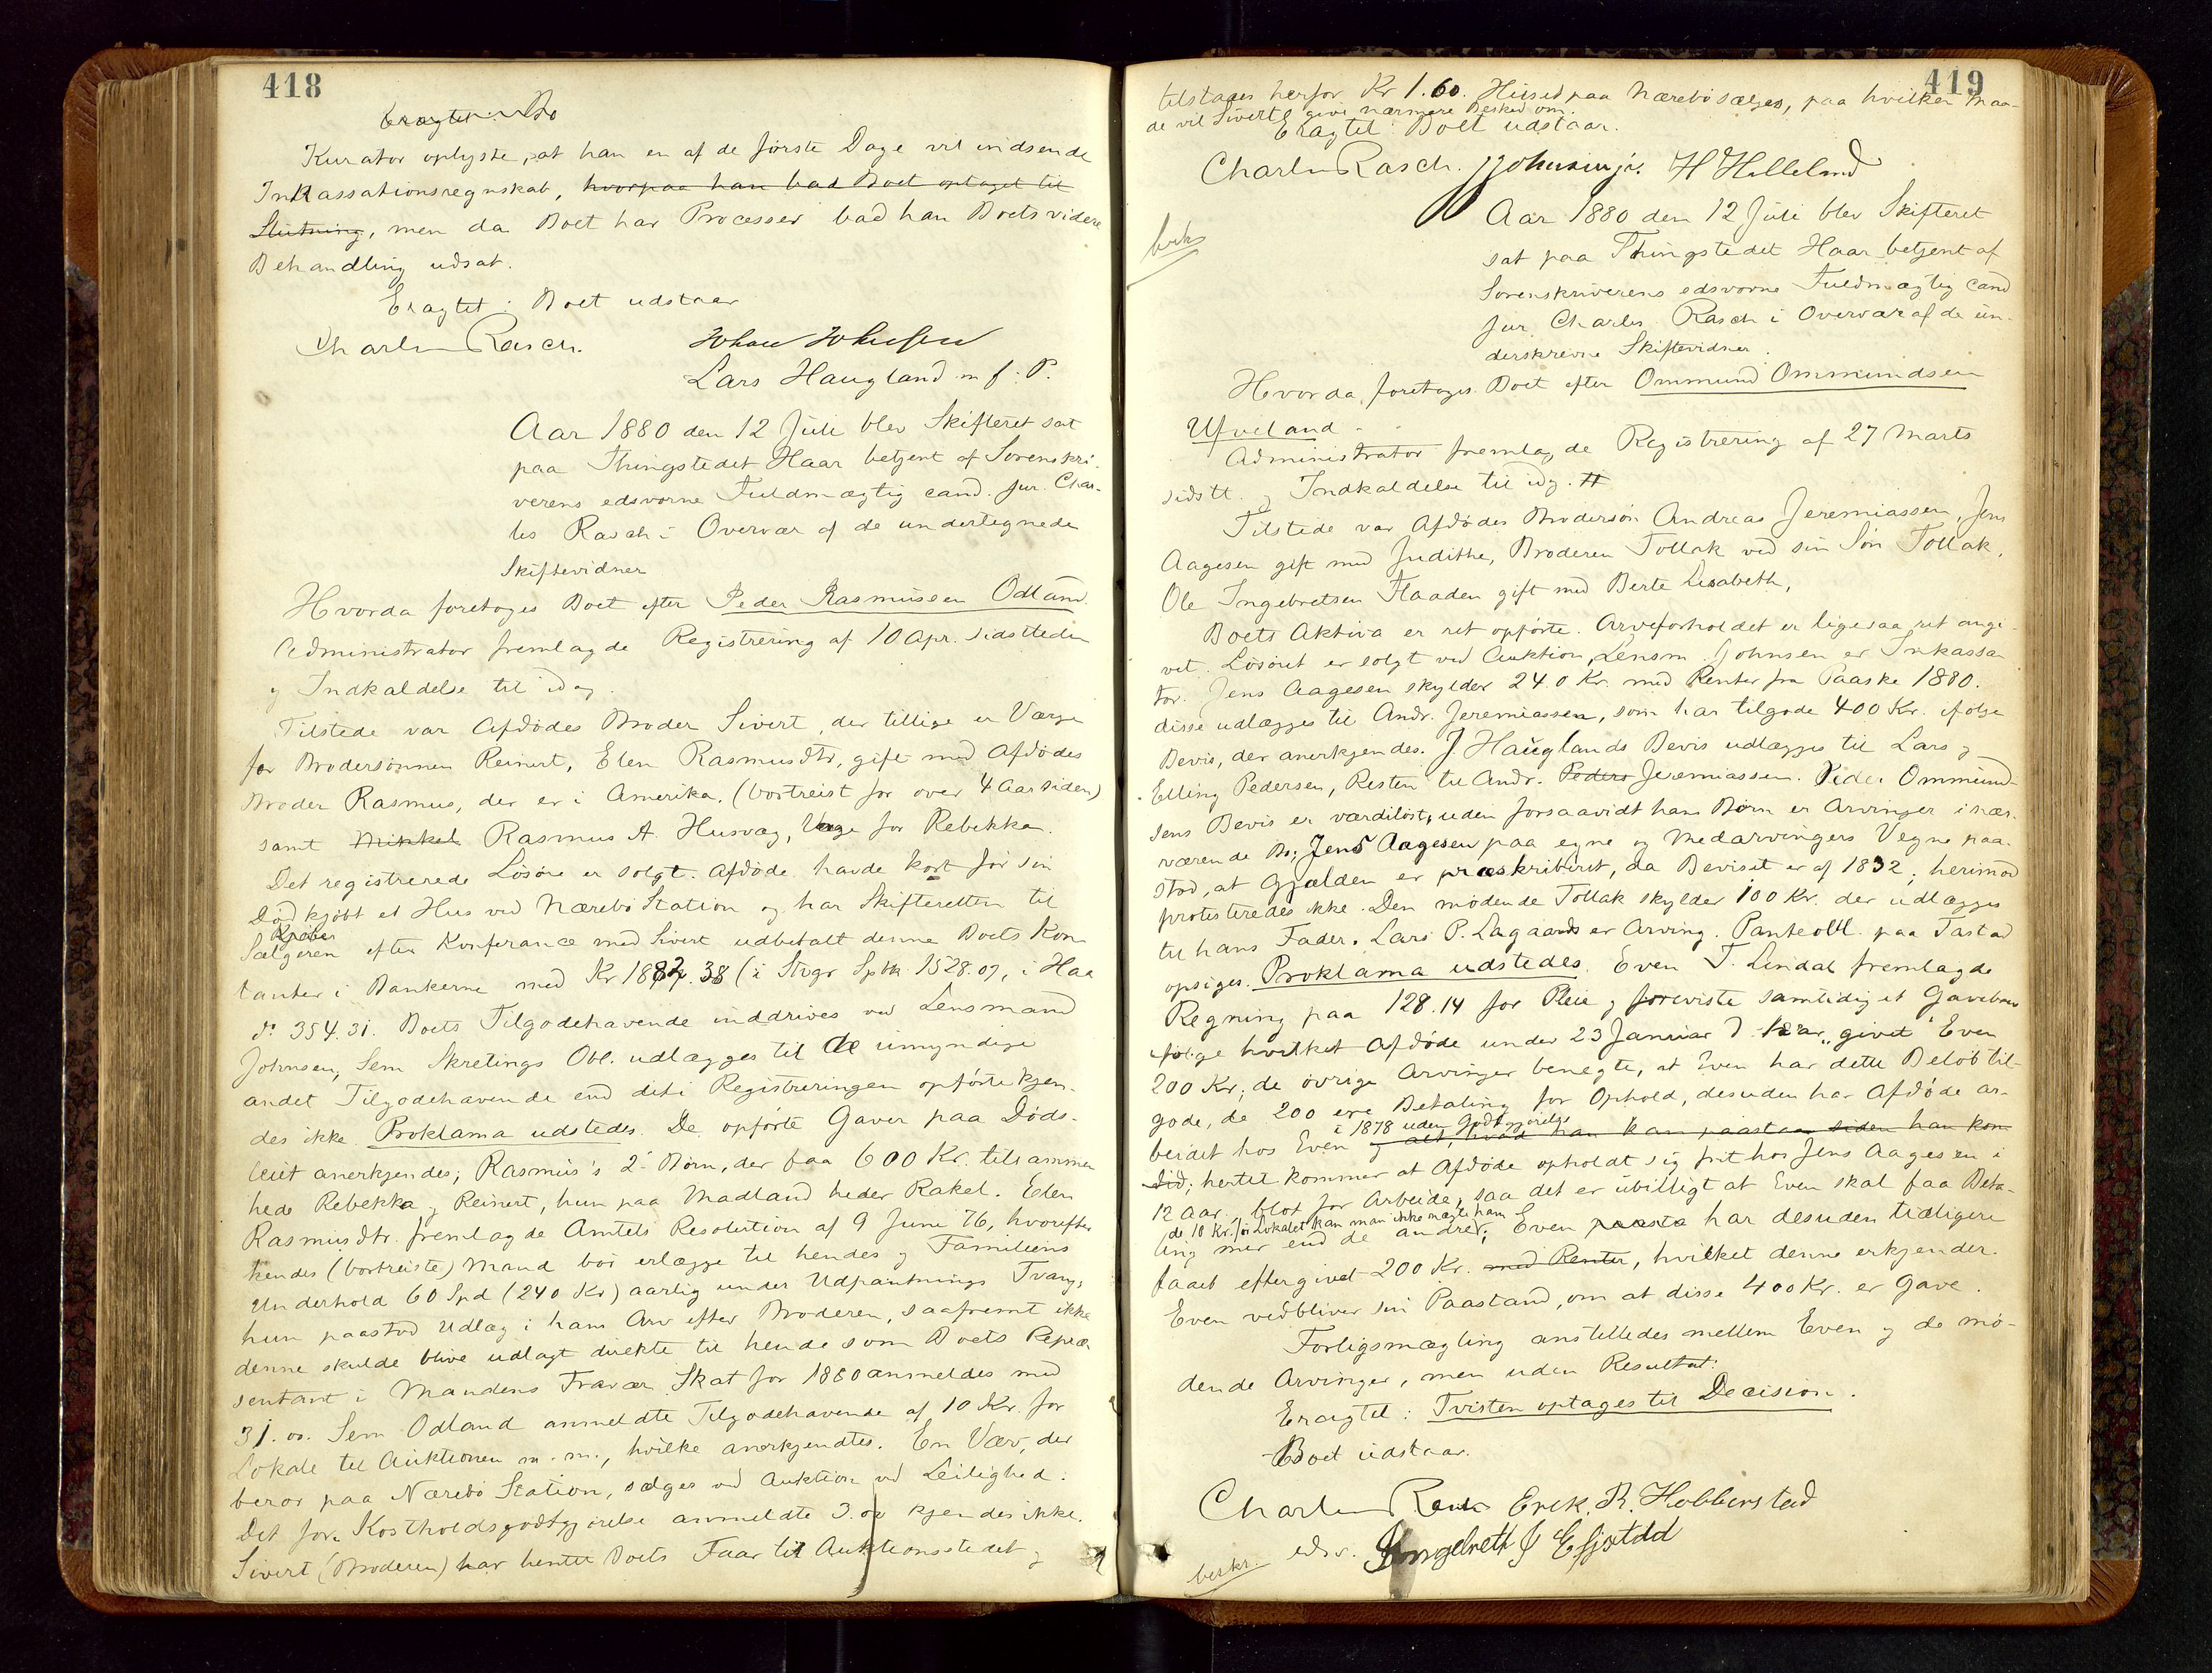 418
Eragtet: Bo
Kurator oplyste, at han en af de første Dage vil indsende
Inkassationsregnskab, hvorpaa han bad Boet optaget til
Slutning, men da Boet har Processer bad han Boets videre
Behandling udsat.
Eragtet: Boet udstaar
Charles Rasch. Johan Johnsen
Lars Haugland m. f. P.
Aar 1880 den 12 Juli blev Skifteret sat
paa Thingstedet Haar betjent af Sorenskri-
verens edsvorne Fuldmægtig cand. jur. Char-
les Rasch i Overvær af de undertegnede
Skiftevidner
Hvorda foretoges Boet efter Peder Rasmussen Odland.
Administrator fremlagde Registrering af 10 Apr. sidstleden
og Indkaldelse til idag.
Tilstede var Afdødes Broder Sivert, der tillige er Værge
for Brodersønnen Reinert, Elen Rasmusdtr, gift med Afdødes
Broder Rasmus, der er i Amerika. (bortreist for over 4 Aar siden)
samt Mikkel Rasmus A. Husvæg, Værge for Rebekka.
Det registrerede Løsøre er solgt. Afdøde havde kort før sin
Død kjøbt et Hus ved Nærebø Station og har Skifteretten til
Kjøber
Sælgeren efter Konferance med Sivert udbetalt denne Boets Kon-
tanter i Bankerne med Kr 1882.38 (i Stvgr Spbk 1528.07, i Haa
do 354.31. Boets Tilgodehavende inddrives ved Lensmand
Johnsen, Sem Skretings Obl. udlægges til de umyndige
andet Tilgodehavende end det i Registreringen opførte kjen-
des ikke. Proklama udstedes. De opførte Gaver paa Døds-
leiet anerkjendes; Rasmus's 2 Børn, der faa 600 Kr. tilsammen
hede Rebekka og Reinert, hun paa Madland heder Rakel. Elen
Rasmusdtr. fremlagde Amtets Resolution af 9 Juni 76, hvorefter
hendes (bortreiste) Mand bør erlægge til hendes og Familiens
Underhold 60 Spd (240 Kr) aarlig under Udpantnings Tvang,
hun paastod Udlæg i hans Arv efter Broderen, saafremt ikke
denne skulde blive udlagt direkte til hende som Boets Repræ-
sentant i Mandens Fravær. Skat for 1880 anmeldes med
31.00. Sem Odland anmeldte Tilgodehavende af 10 Kr. for
Lokale til Auktionen m. m., hvilke anerkjendtes. En Væv, der
beror paa Nærebø Station, sælges ved Auktion ved Leilighed.
Det for Kostholdsgodtgjørelse anmeldte 3.00 kjendes ikke.
Sivert (Broderen) har hentet Boets Faar til Auktionsstedet og
419
tilstaaes herfor Kr 1.60. Huset paa Nærebø sælges, paa hvilken Maa-
de vil Sivert give nærmere Besked om.
Eragtet: Boet udstaar.
Charles Rasch. Johnsen jr. H Helleland
beskr
Aar 1880 den 12 Juli blev Skifteret
sat paa Thingstedet Haar betjent af
Sorenskriverens edsvorne Fuldmægtig cand
jur. Charles Rasch i Overvær af de un-
derskrevne Skiftevidner.
Hvorda foretoges Boet efter Ommund Ommundsen
Ufveland.
Administrator fremlagde Registrering af 27 Marts
sidstl. og Indkaldelse til idag.
Tilstede var Afdødes Brodersøn Andreas Jeremiassen, Jens
Aagesen gift med Judithe, Broderen Tollak ved sin Søn Tollak,
Ole Ingebretsen Haaden gift med Berte Lisabeth,
Boets Aktiva er ret opførte. Arveforholdet er ligesaa ret angi-
vet. Løsøret er solgt ved Auktion, Lensm. Johnsen er Inkassa-
tor. Jens Aagesen skylder 240 Kr. med Renter fra Paaske 1880.
disse udlægges til Andr. Jeremiassen, som har tilgode 400 Kr. ifølge
Bevis, der anerkjendes. J. Hauglands Bevis udlægges til Lars og
Elling Pedersen, Resten til Andr. Peders Jeremiassen. Peder Ommund-
sens Bevis er værdiløst, uden forsaavidt hans Børn er Arvinger i nær-
værende Bo; Jens Aagesen paa egne og Medarvingers Vegne paa-
stod, at Gjælden er præskriberet, da Beviset er af 1832; herimod
protesteredes ikke. Den mødende Tollak skylder 100 Kr. der udlægges
til hans Fader. Lars P. Lagaards er Arving. Panteobl. paa Tastad
opsiges. Proklama udstedes. Even T. Lindal fremlagde
Regning paa 128.14 for Pleie og foreviste samtidig et Gavebrev
ifølge hvilket Afdøde under 23 Januar d. Aar „givet" Even
200 Kr; de øvrige Arvinger benegte, at Even har dette Beløb til-
gode, de 200 ere Betaling for Ophold, desuden har Afdøde ar-
i 1878 uden Godtgjørelse
beidet hos Even og alt, hvad han kan paastaa siden han kom
did; hertil kommer at Afdøde opholdt sig frit hos Jens Aagesen i
12 Aar, blot for Arbeide, saa det er ubilligt at Even skal faa Beta-
de 10 Kr. for Lokalet kan man ikke negte ham
ling mer end de andre; Even paasta har desuden tidligere
faaet eftergivet 200 Kr. med Renter, hvilket denne erkjender.
Even vedbliver sin Paastand, om at disse 400 Kr. er Gave.
Forligsmægling anstilledes mellem Even og de mø-
dende Arvinger, men uden Resultat.
Eragtet: Tvisten optages til Decision.
Boet udstaar.
Charles Rasch Erik R. Hobberstad
edsv. Ingebreth J Efjestad
beskr.